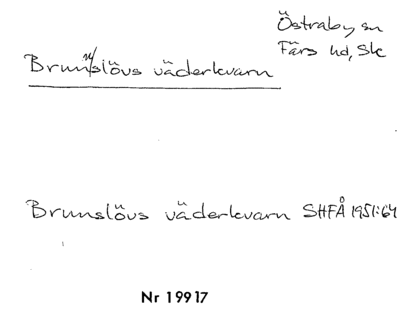 Östraby sn
Färs hd, Sk
Brunnslövs väderkvarn
Brunslövs väderkvarn SHFÅ 1951:64
Nr 19917